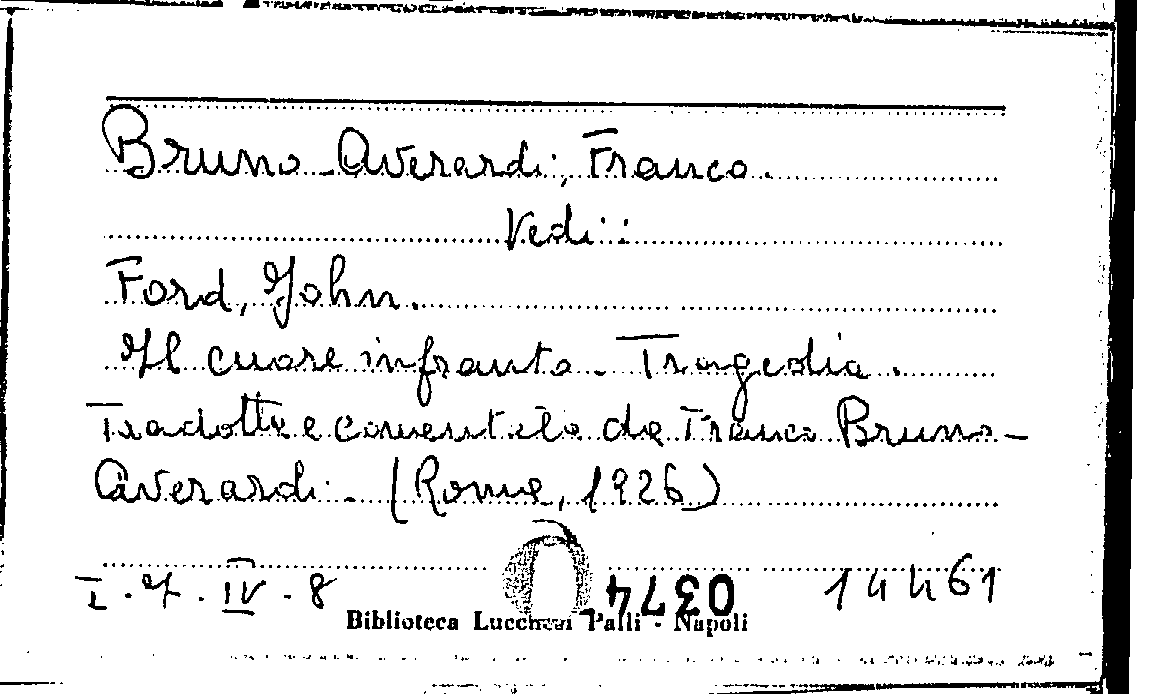 Bruno-Averardi, Franco.
Vedi:
Ford, John.
Il cuore infranto. Tragedia.
Tradotta e comentata da Franco Bruno-
Averardi. (Roma, 1926)
I. 7. IV. 8
0374
14461
Biblioteca Lucchesi Palli - Napoli